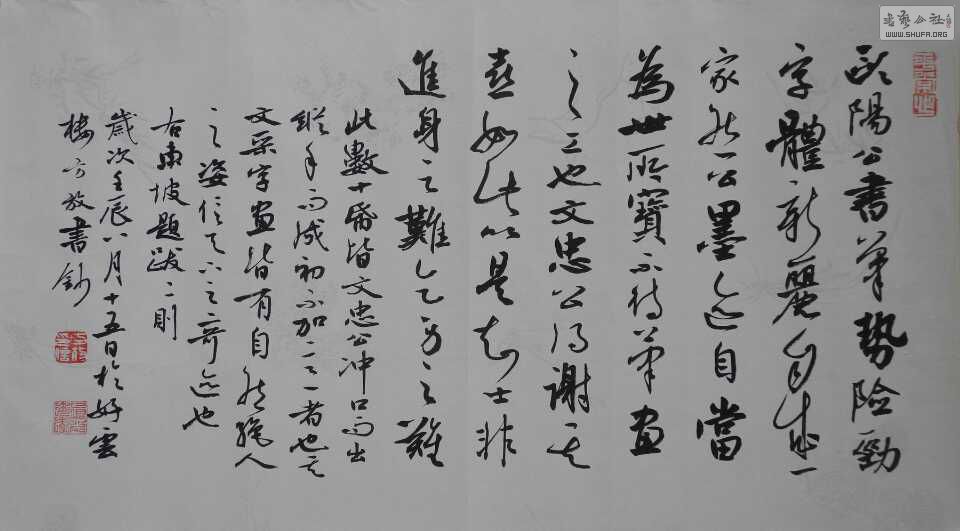 欧陽公書筆勢險勁
字體新麗自成一
家然公墨迹自當
為世所寶不待筆畫
之工也文忠公得謝其
喜如此以是知士非
進身之難乞身之難
此數十紙皆文忠公冲口而出
縱手而成初不加意者也其
文采字畫皆有自然絕人
之姿信天下之奇迹也
右東坡題跋二則
歲次壬辰八月十五日於好雲
樓方放書鈔
書藝公社
WWW.SHUFA.ORG